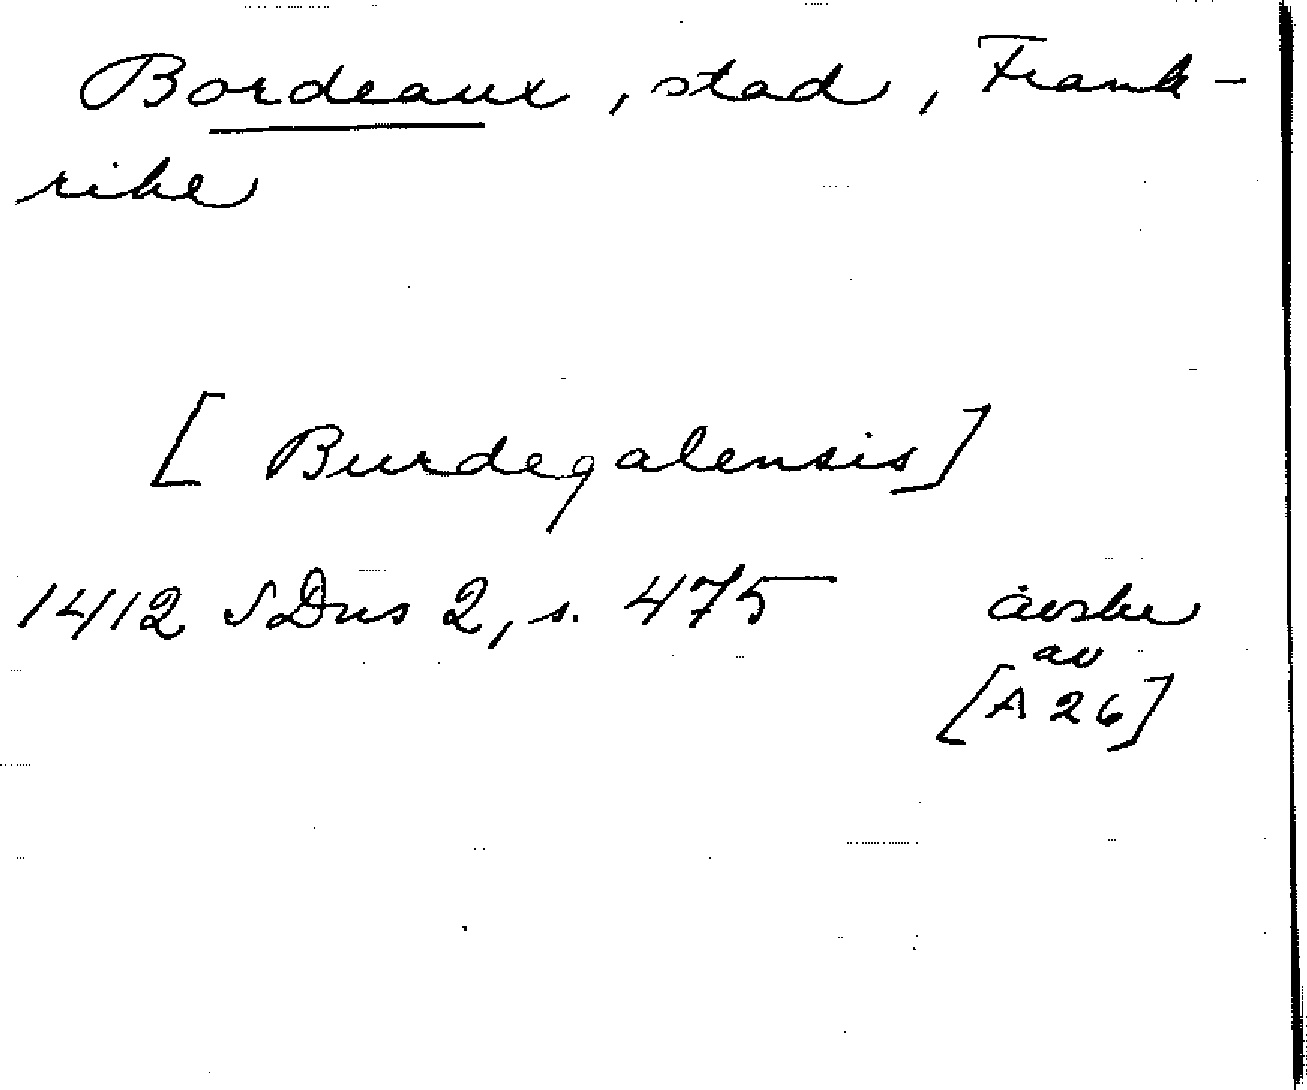 Bordeaux, stad, Frank-
rike
[Burdegalensis]
1412 SDns 2, s. 475 avskr
av
[A 26]